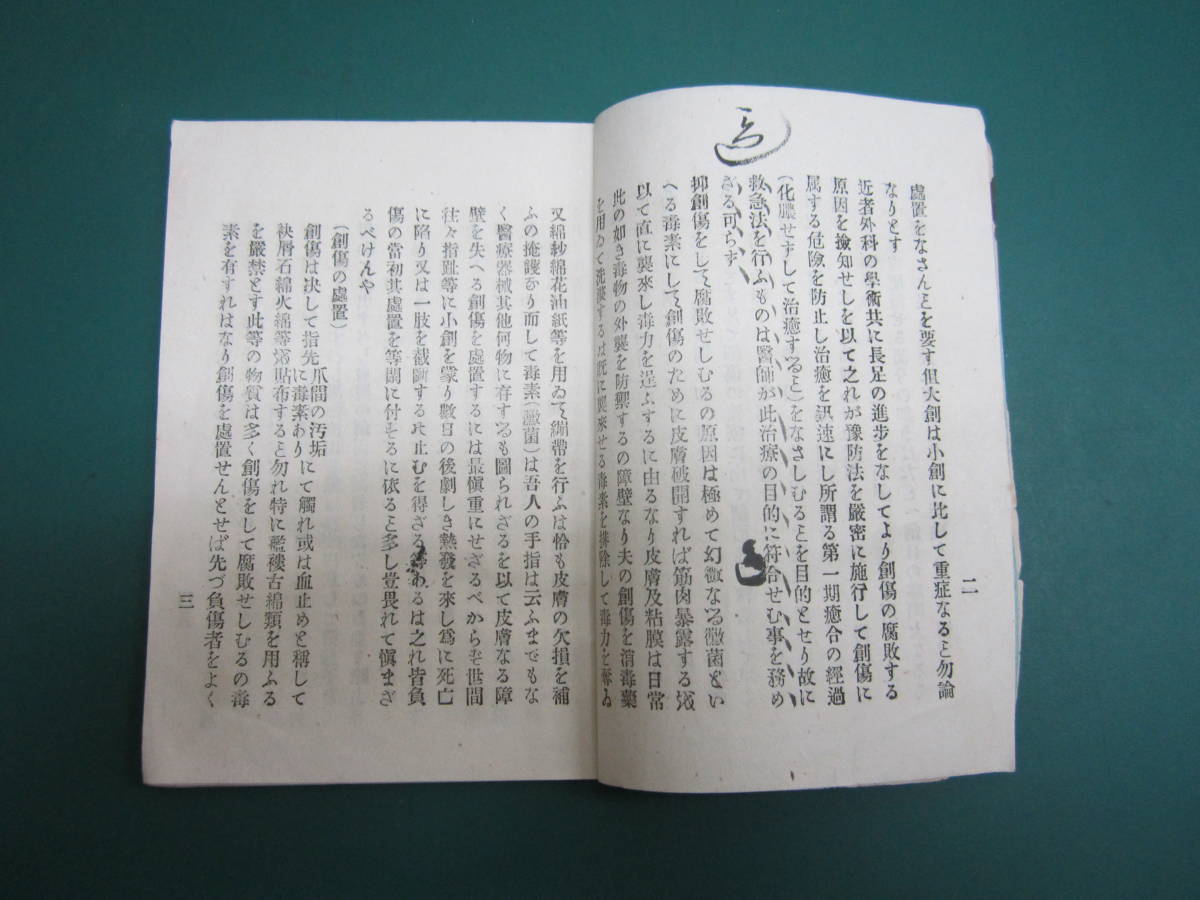 二
處置をなさんとを要す但大創は小創に比して重症なると勿論
なりとす
近者外科の學術共に長足の進步をなしてより創傷の腐敗する
原因を撿知せしを以て之れが豫防法を嚴密に施行して創傷に
属する危險を防止し治癒を迅速にし所謂る第一期癒合の經過
(化膿せずして治癒すると)をなさしむると を目的とせり故に
救急法を行ふものは醫師が此治療の目的に符合せむ事を務め
ざる可らず
抑創傷をして腐敗せしむるの原因は極めて幻微なる黴菌とい
へる毒素にして創傷のために皮膚破開すれば筋肉暴露する
以て直に襲來し毒力を逞ふするに由るなり皮膚及粘膜は日常
此の如き毒物の外襲を防禦するの障壁なり夫の創傷を消毒藥
を用ゐて洗滌するは既に襲來せる毒素を排除して毒力を奪ゐ
又綿紗綿花油紙等を用ゐて綳帶を行ふは恰も皮膚の欠損を補
ふの掩護なり而して毒素(黴菌)は吾人の手指は云ふまでもな
く醫療器械其他何物に存するも圖られざるを以て皮膚なる障
壁を失へる創傷を處置するには最愼重にせざるべからず世間
往々指趾等に小創を蒙り數日の後劇しき熱發を來し爲に死亡
に陷り又は一肢を截斷する止むを得ざる等あるは之れ皆負
傷の當初其處置を等閑に付するに依ると多し豈畏れて愼まざ
るべけんや
(創傷の處置)
創傷は决して指先(爪間の汚垢に毒素あり)にて觸れ或は血止めと稱して
袂屑石綿火綿等貼布すると勿れ特に襤褸古綿類を用ふる
を嚴禁とす此等の物質は多く創傷をして腐敗せしむるの毒
素を有すればなり創傷を處置せんとせば先づ負傷者をよく
三